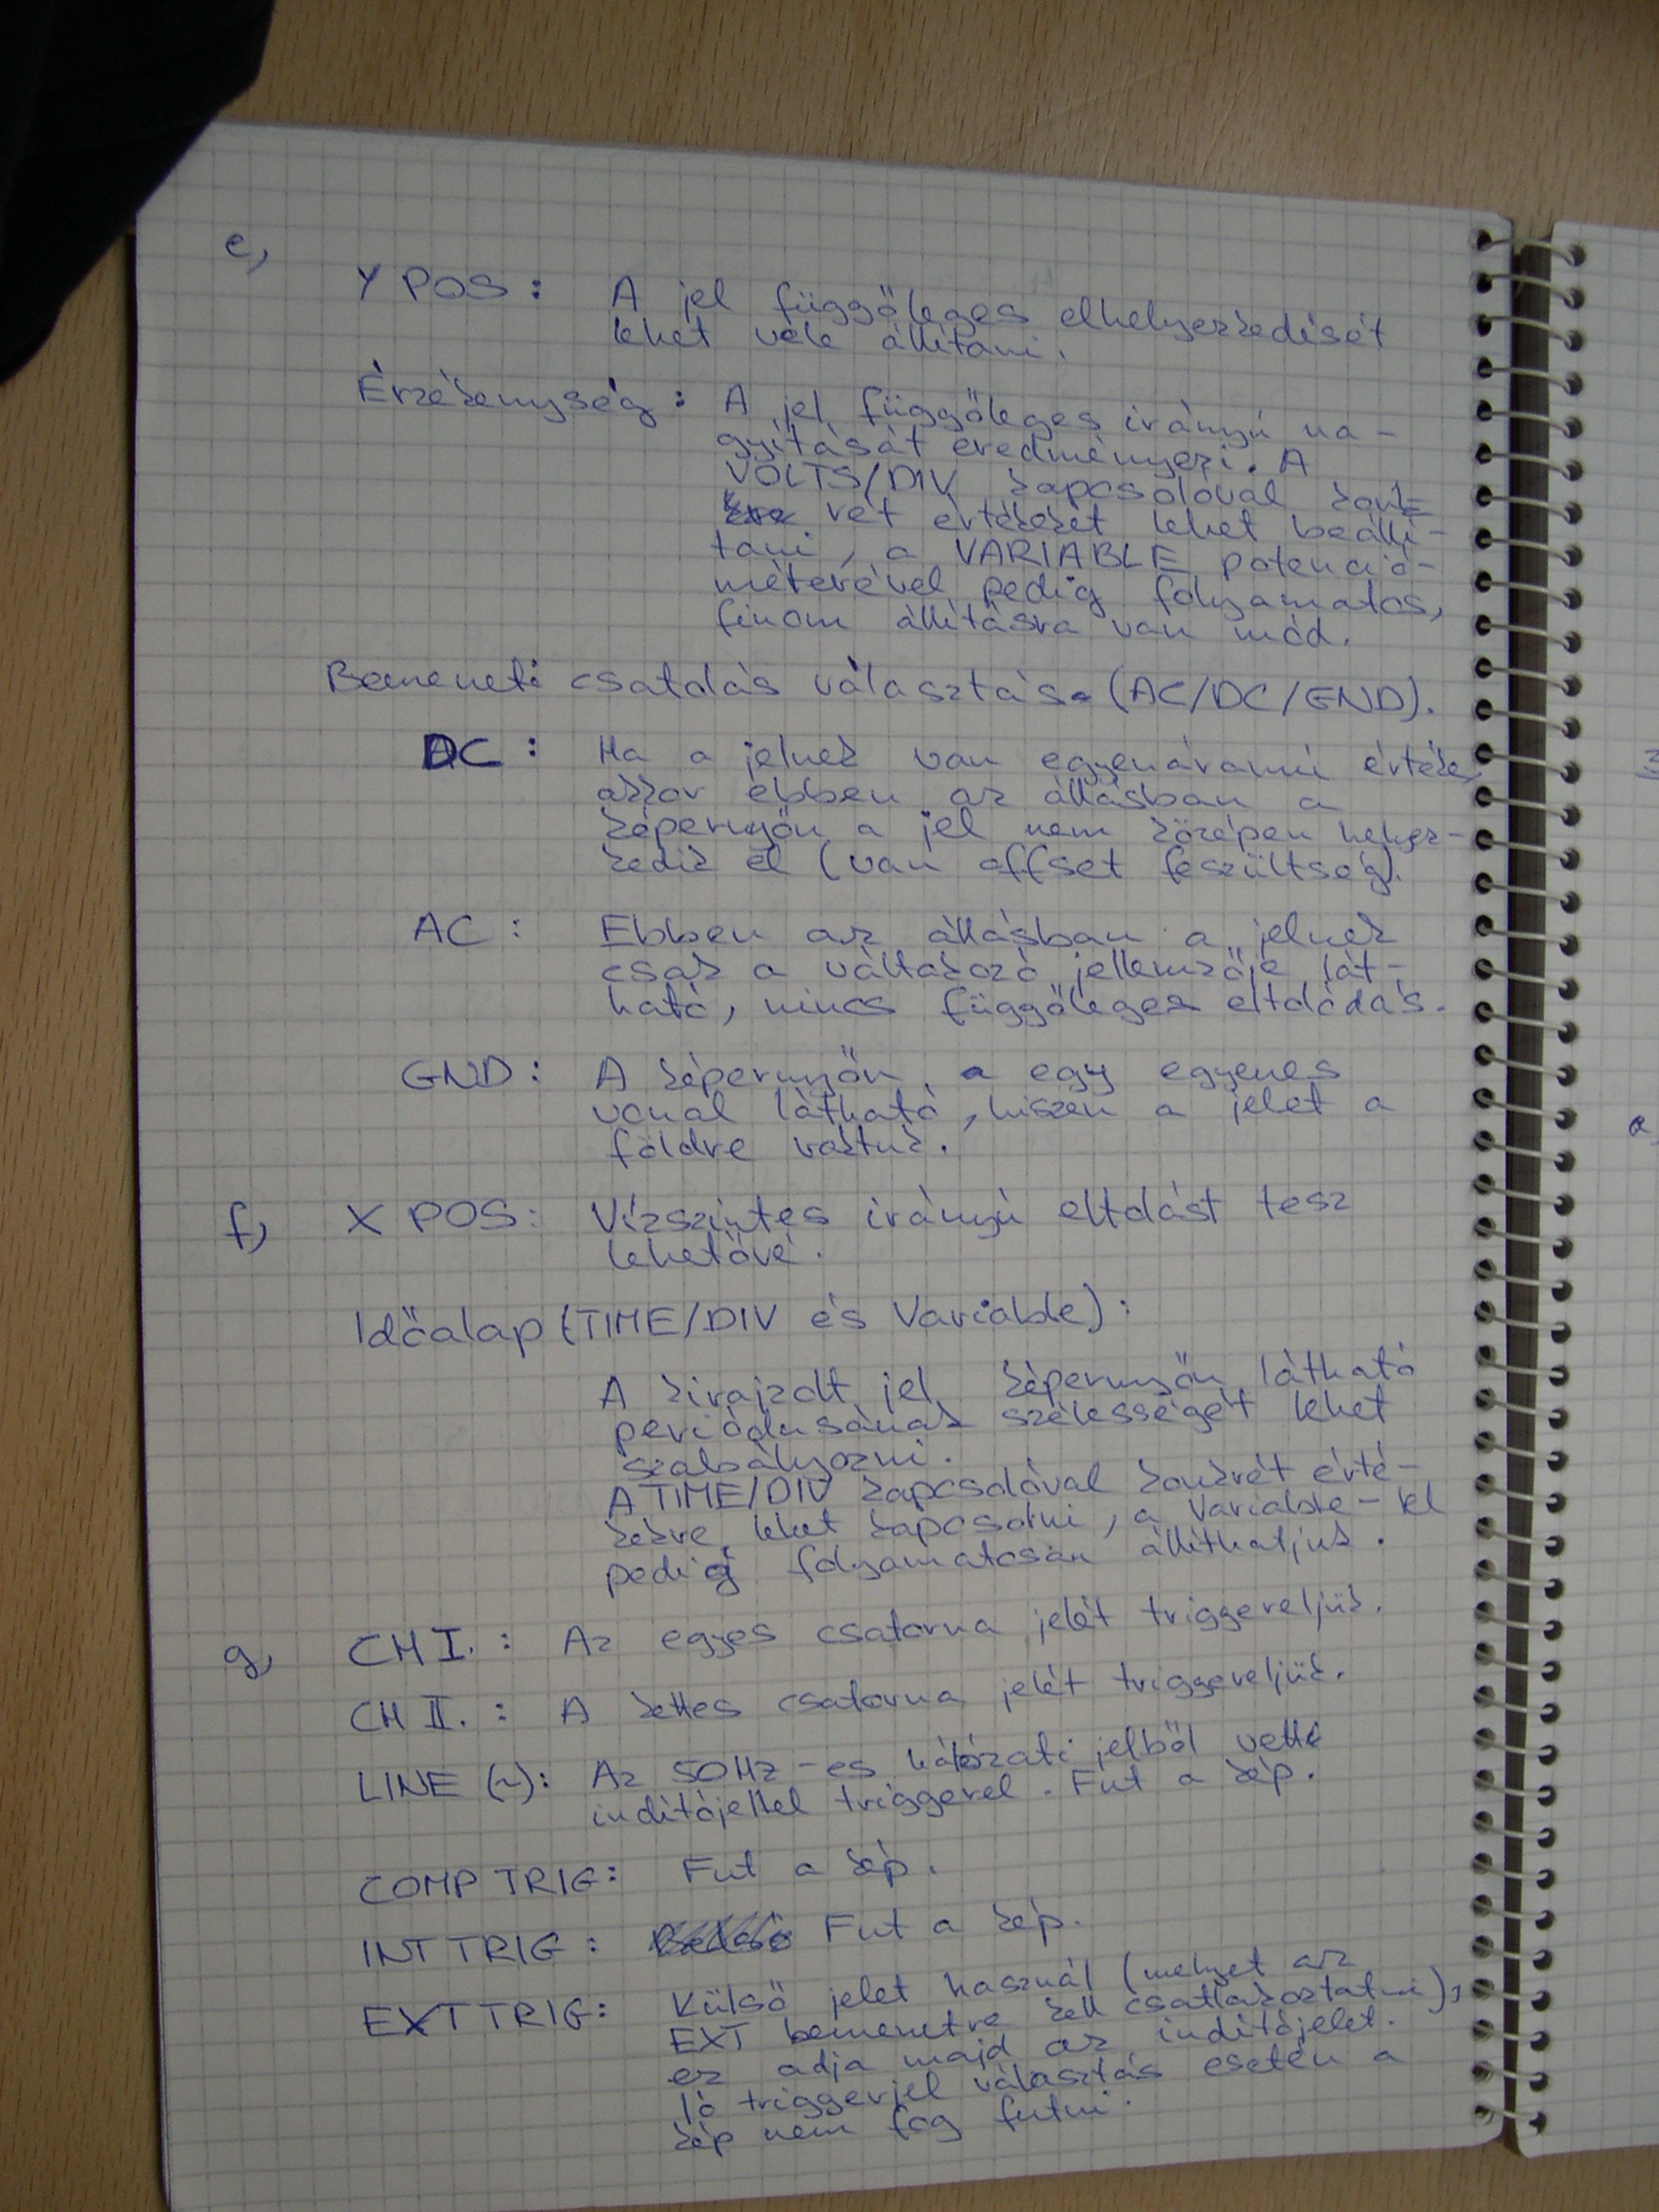 e,
Y POS: A jel függőleges elhelyezkedését
lehet vele állítani.
Érzékenység: A jel függőleges irányú na-
gyítását eredményezi. A
VOLTS/DIV kapcsolóval konk-
rét értékekét lehet beállí-
tani, a VARIABLE potenció-
méterével pedig folyamatos,
finom állításra van mód.
Bemeneti csatolás választás (AC/DC/GND).
DC: Ha a jelnek van egyenáramú értéke,
akkor ebben az állásban a
képernyőn a jel nem középen helyez-
kedik el (van offset feszültség).
AC: Ebben az állásban a jelnek
csak a váltakozó jellemzője lát-
ható, nincs függőleges eltolódás.
GND: A képernyőn, a egy egyenes
vonal látható, hiszen a jelet a
földre raktuk.
f, X POS: Vízszintes irányú eltolást tesz
lehetővé.
Időalap (TIME/DIV és Variable):
A kirajzolt jel képernyőn látható
periódusának szélességét lehet
szabályozni.
A TIME/DIV kapcsolóval konkrét érté-
kekre lehet kapcsolni, a Variable-lel
pedig folyamatosan állíthatjuk.
g, CH I.: Az egyes csatorna jelét triggereljük.
CH II.: A kettes csatorna jelét triggereljük.
LINE (~): Az 50Hz-es hálózati jelből vett
indítójellel triggerel. Fut a kép.
COMP TRIG: Fut a kép.
INT TRIG: Fut a kép.
EXT TRIG: Külső jelet használ (melyet az
EXT bemenetre kell csatlakoztatni),
ez adja majd az indítójelet.
Jó triggerjel választás esetén a
kép nem fog futni.
a,